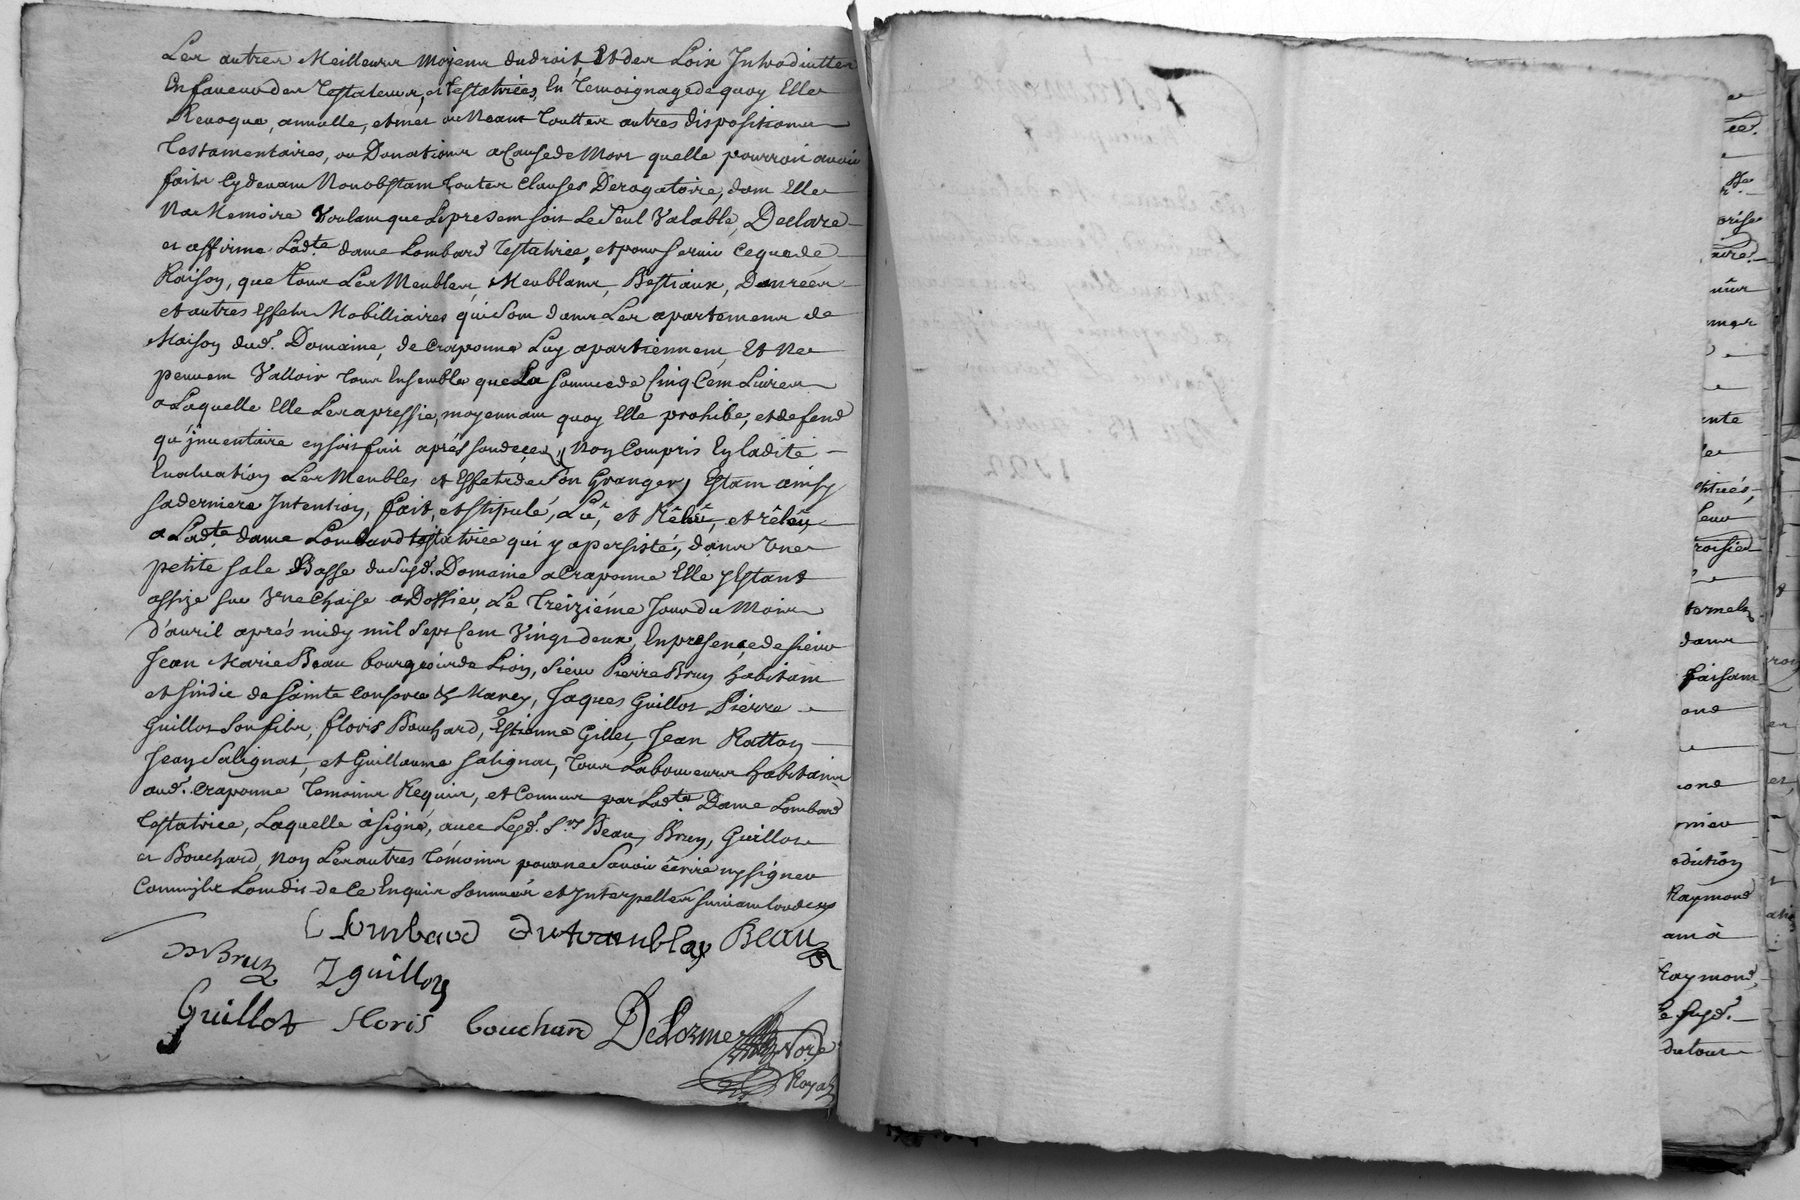 Les autres Meilleurs moyens du droit, Et des Loix Introduittes
En faveur des Testateurs, et Testatrices, En Temoignage de quoy Elle
Revoque, annulle, et met au Neant Touttes autres dispositions
Testamentaires, ou Donations a Cause de Mort quelle pourroit avoir
fait Cy devant Nonobstant Toutes Clauses Derogatoire, dont Elle
Na Memoire Voulant que Le present soit Le Seul Valable, Declare
et affirme Ladte. dame Lombard Testatrice, et pour servir ce que de
Raison, que Tous Les Meubles, Meublans, Bestiaux, Danrées
et autres Effets Mobilliaires qui sont dans Les apartemens de
Maison dud. Domaine, de Craponne Luy apartiennent, Et Ne
peuvent Valloir Tous Ensembles que La somme de Cinq Cent Livres
a Laquelle Elle Les apressie, moyennant quoy Elle prohibe, et defend
qu'jnventaire en soit fait aprés son deces, Non Compris En ladite
Evaluation Les Meubles et Effets de Son Granger, Estant ainsy
sa derniere Intention, fait, et stipulé, Lû, et Rêlû, et rêlû
a Ladte. dame Lombard testatrice qui y a persisté, dans Une
petite sale Basse du Susd. Domaine a Craponne Elle y Estant
assize sur Vne Chaise a Dossier, Le Treiziéme Jour du Mois
d'avril aprés midy mil Sept Cent Vingt deux, En presence de sieur
Jean Marie Beau bourgeois de Lion, sieur Pierre Brun habitant
et sindic de Sainte Consorce & Marcy, Jaques Guillot Pierre
Guillot Son fils, floris Bouchard, Estienne Gilles, Jean Ratton
Jean Salignat, et Guillaume Salignat, Tous Laboureurs habitans
aud. Craponne Temoins Requis, et Connus par Ladte. Dame Lombard
Testatrice, Laquelle à signé, avec Lesd. Srs Beau, Brun, Guillot
et Bouchard, Non Les autres Témoins pour ne Savoir écrire ny signer
Comm'ils L'ont dit de Ce Enquis sommés et Interpellés suivant l'ordce
Lombard Dutramblay Beau
P Brun J guillot
Guillot floris bouchard Delorme
Nore.
Royal
ente
ternels
dans
faisant
Raymond
Raymond,
Le susd.